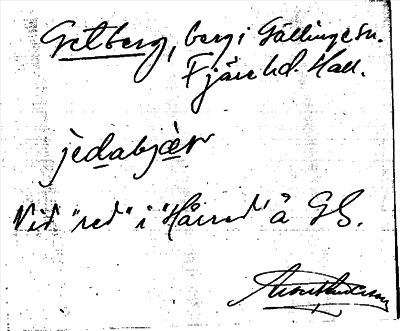 Getberg, berg i Gällinge sn.
Fjäre hd. Hall.
jedabjær
Vid "red" i "Härred" å GS.